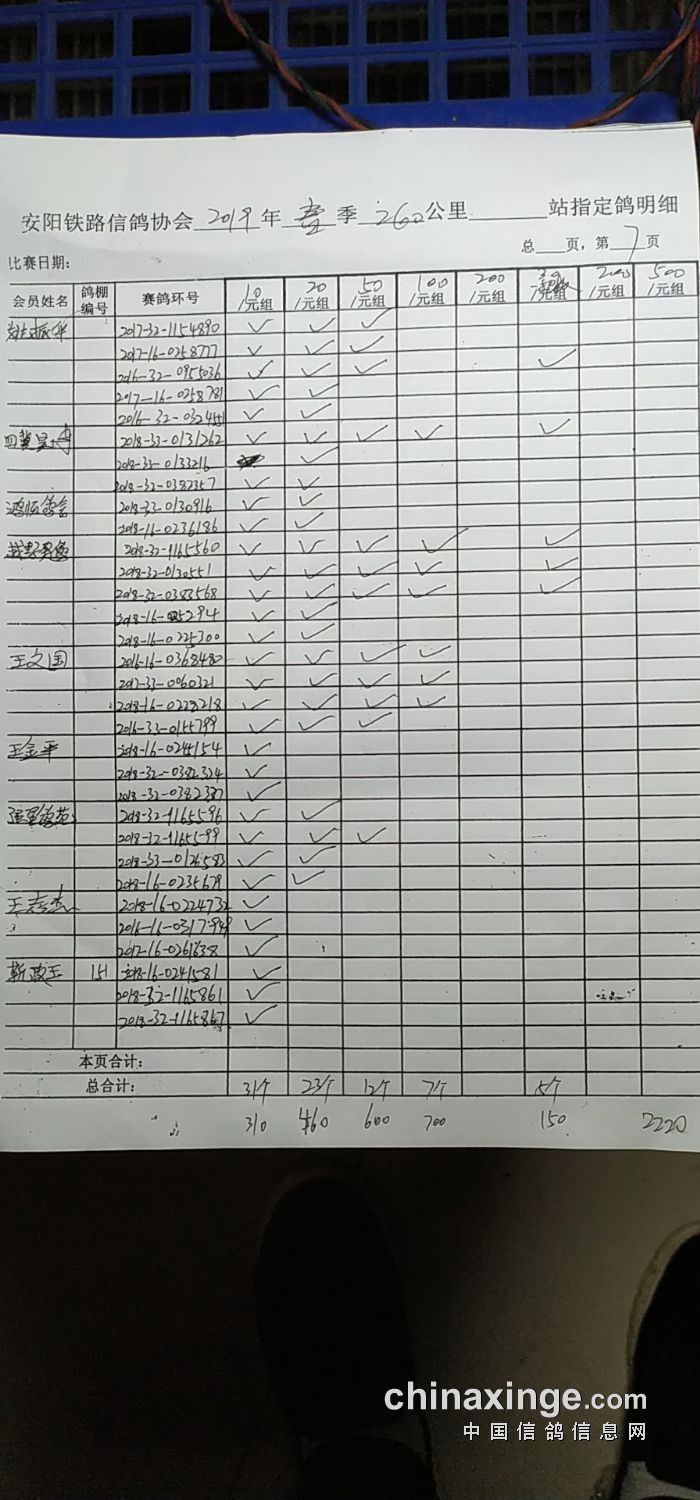 安阳铁路信鸽协会 2019 年 春 季 260 公里 站指定鸽明细
总 页，第 7 页
比赛日期：
会员姓名 鸽棚编号 赛鸽环号 10/元组 20/元组 50/元组 100/元组 200/元组 30/元组 200/元组 500/元组
2017-32-1154890 ✓ ✓ ✓
2017-16-0258777 ✓ ✓ ✓
2016-32-0955036 ✓ ✓ ✓ ✓
2017-16-0258781 ✓ ✓
2016-32-032 ✓ ✓
2018-32-0131262 ✓ ✓ ✓ ✓ ✓
2018-33-0133216 ✓
2018-32-0382357 ✓ ✓
2018-33-0130916 ✓ ✓
2018-16-0236186 ✓ ✓
2018-32-1165560 ✓ ✓ ✓ ✓ ✓
2018-32-0130551 ✓ ✓ ✓ ✓ ✓
2018-32-0383568 ✓ ✓ ✓ ✓ ✓
2018-16- ✓ ✓
2018-16-0225300 ✓ ✓
王文国 2016-16-0368480 ✓ ✓ ✓ ✓
2017-33-0060321 ✓ ✓ ✓ ✓
2018-16-0229218 ✓ ✓ ✓ ✓
2016-33-0155799 ✓ ✓ ✓
王金平 2018-16-0244154 ✓
2018-32-0382324 ✓
2018-32-0382387 ✓
2018-32-1165596 ✓ ✓
2018-32-1165599 ✓ ✓ ✓
2018-33-0126583 ✓ ✓
2018-16-0235679 ✓ ✓
2018-16-0224732 ✓
2016-16-0317949 ✓
2017-16-0261638 ✓
靳政玉 151 2018-16-0241581 ✓
2018-32-1165861 ✓
2018-32-1165867 ✓
本页合计：
总合计： 31个 23个 12个 7个 5个
310 460 600 700 150 2220
chinaxinge.com
中国信鸽信息网